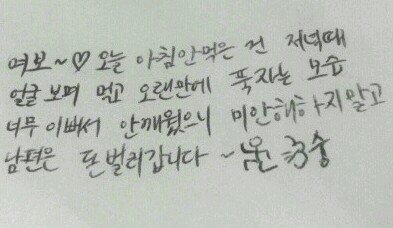 여보~♡ 오늘 아침 안먹은 건 저녁때
얼굴 보며 먹고 오랜만에 푹자는 모습
너무 이뻐서 안깨웠으니 미안해하지말고
남편은 돈벌러갑니다~